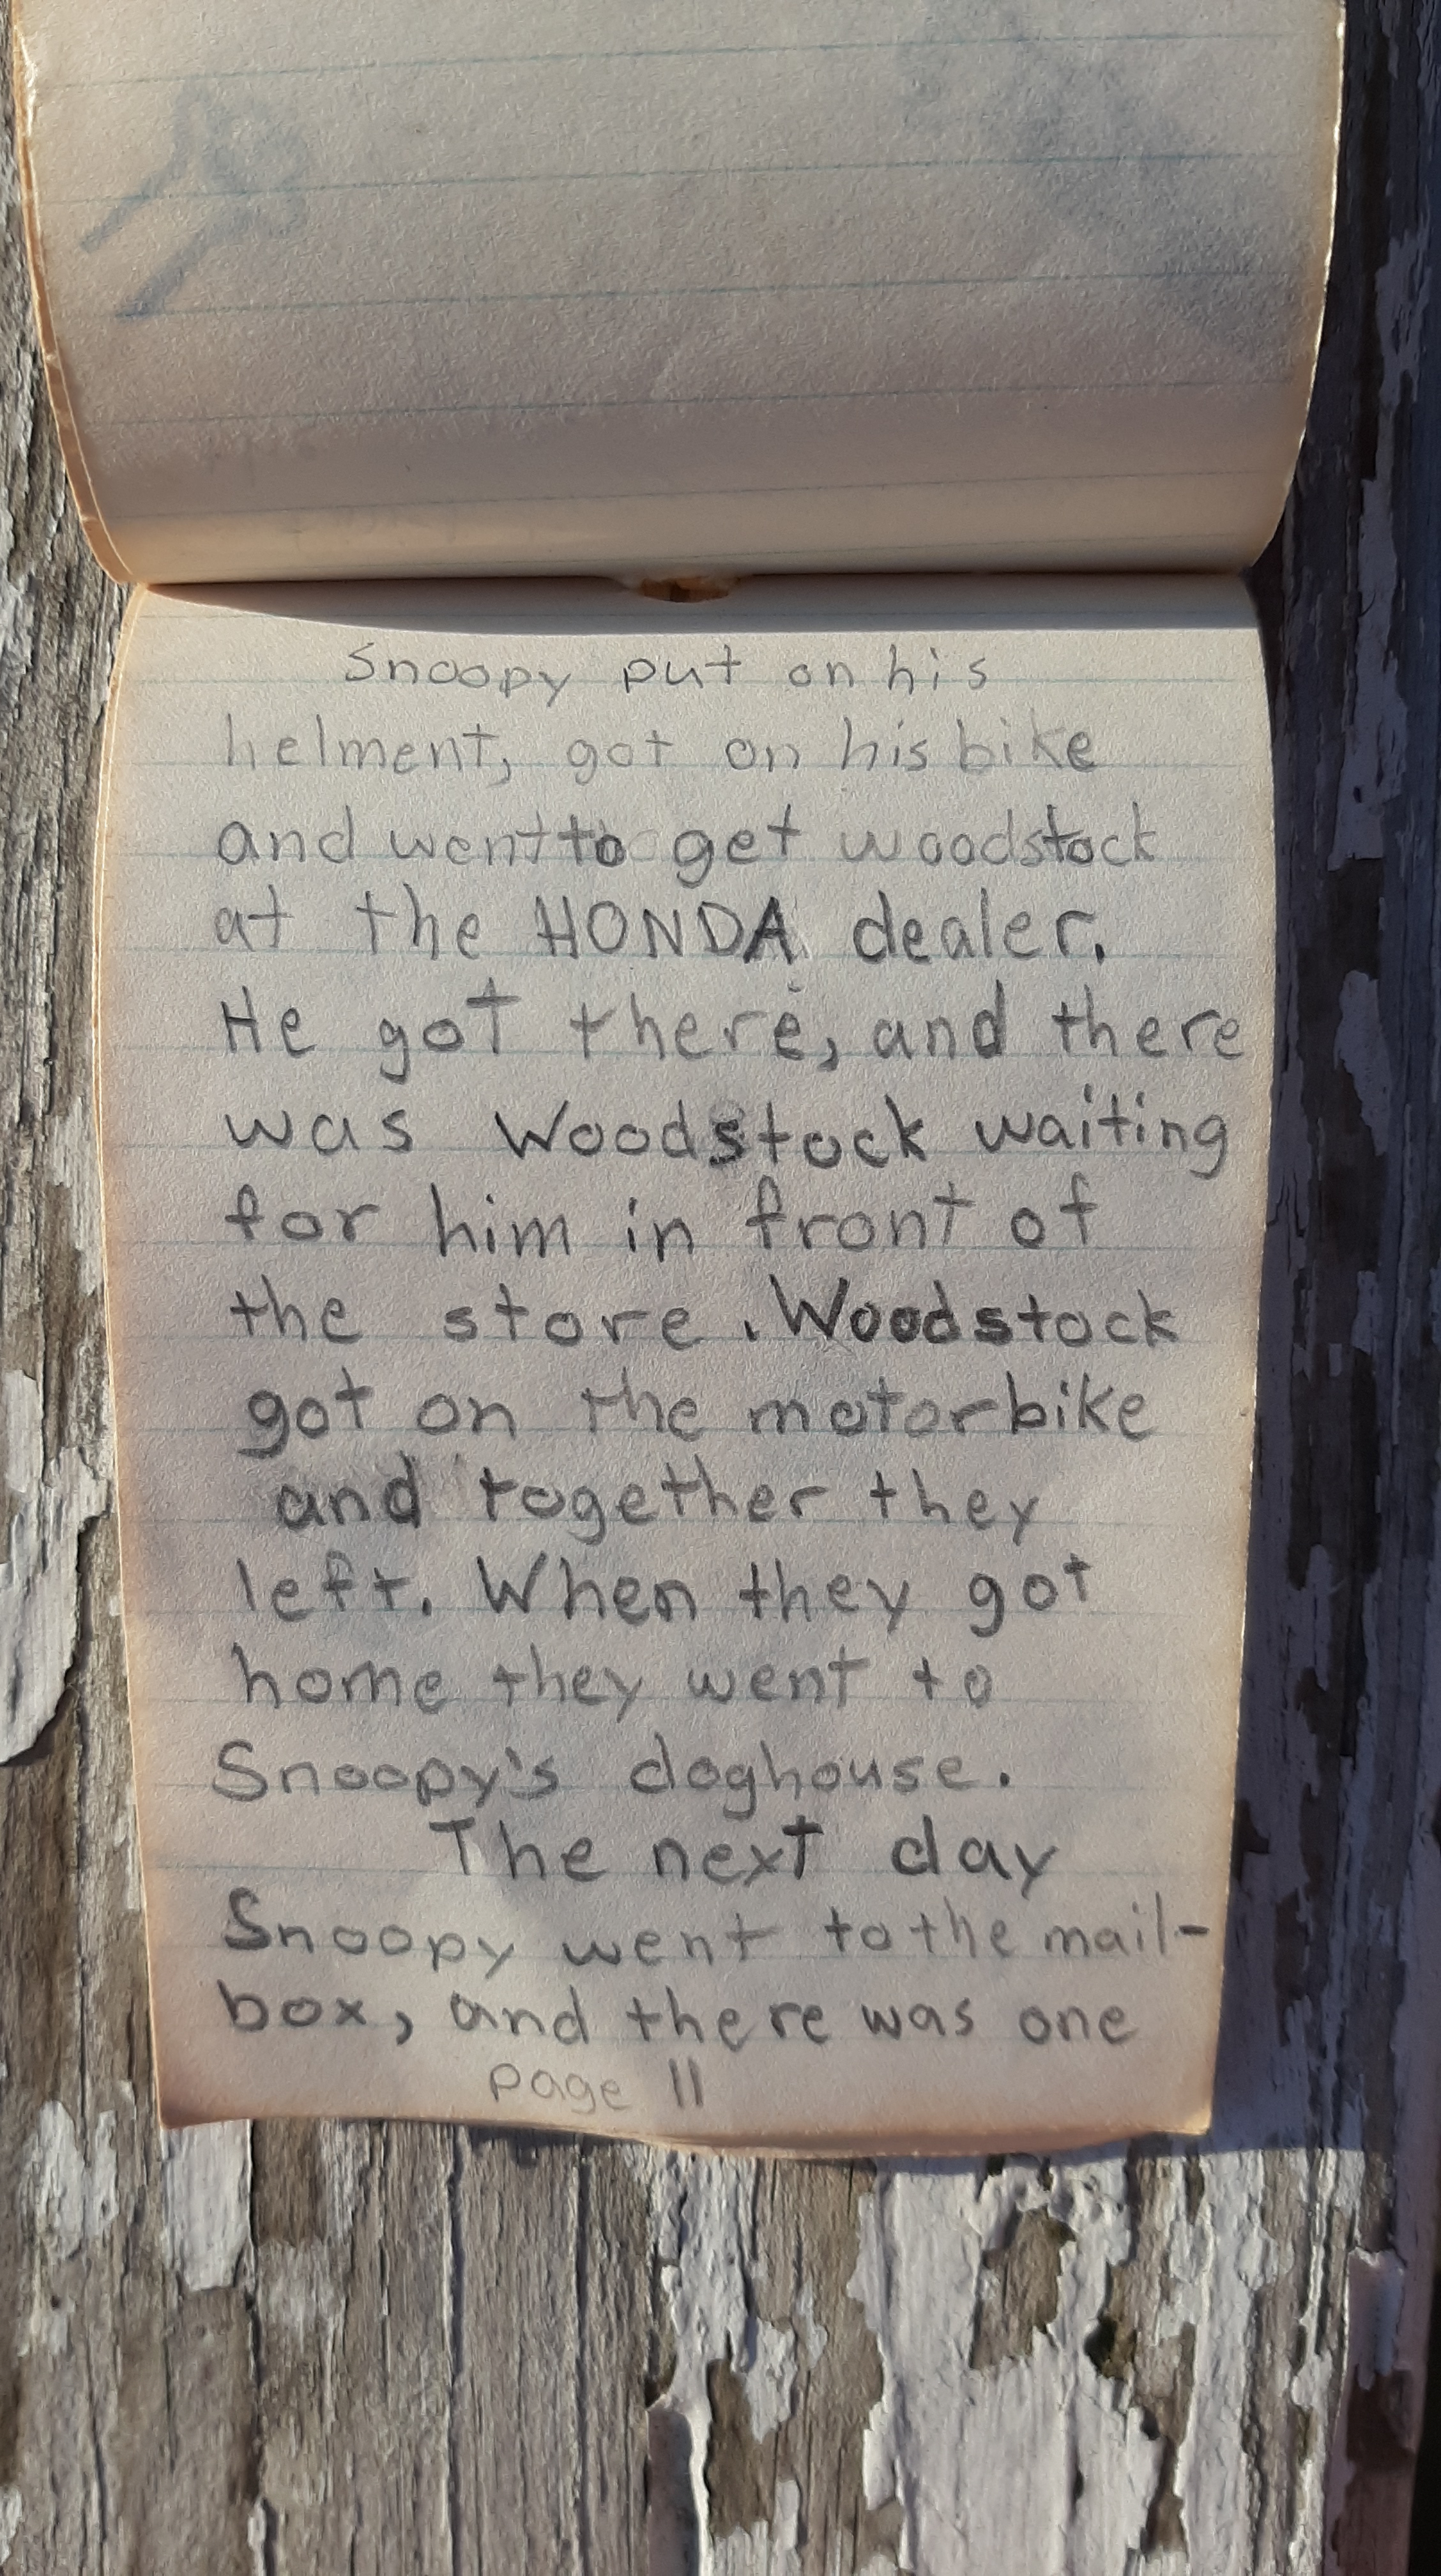 Snoopy put on his
helment, got on his bike
and went to get woodstock
at the HONDA dealer.
He got there, and there
was Woodstock waiting
for him in front of
the store. Woodstock
got on the motorbike
and together they
left. When they got
home they went to
Snoopy's doghouse.
The next day
Snoopy went to the mail-
box, and there was one
page 11